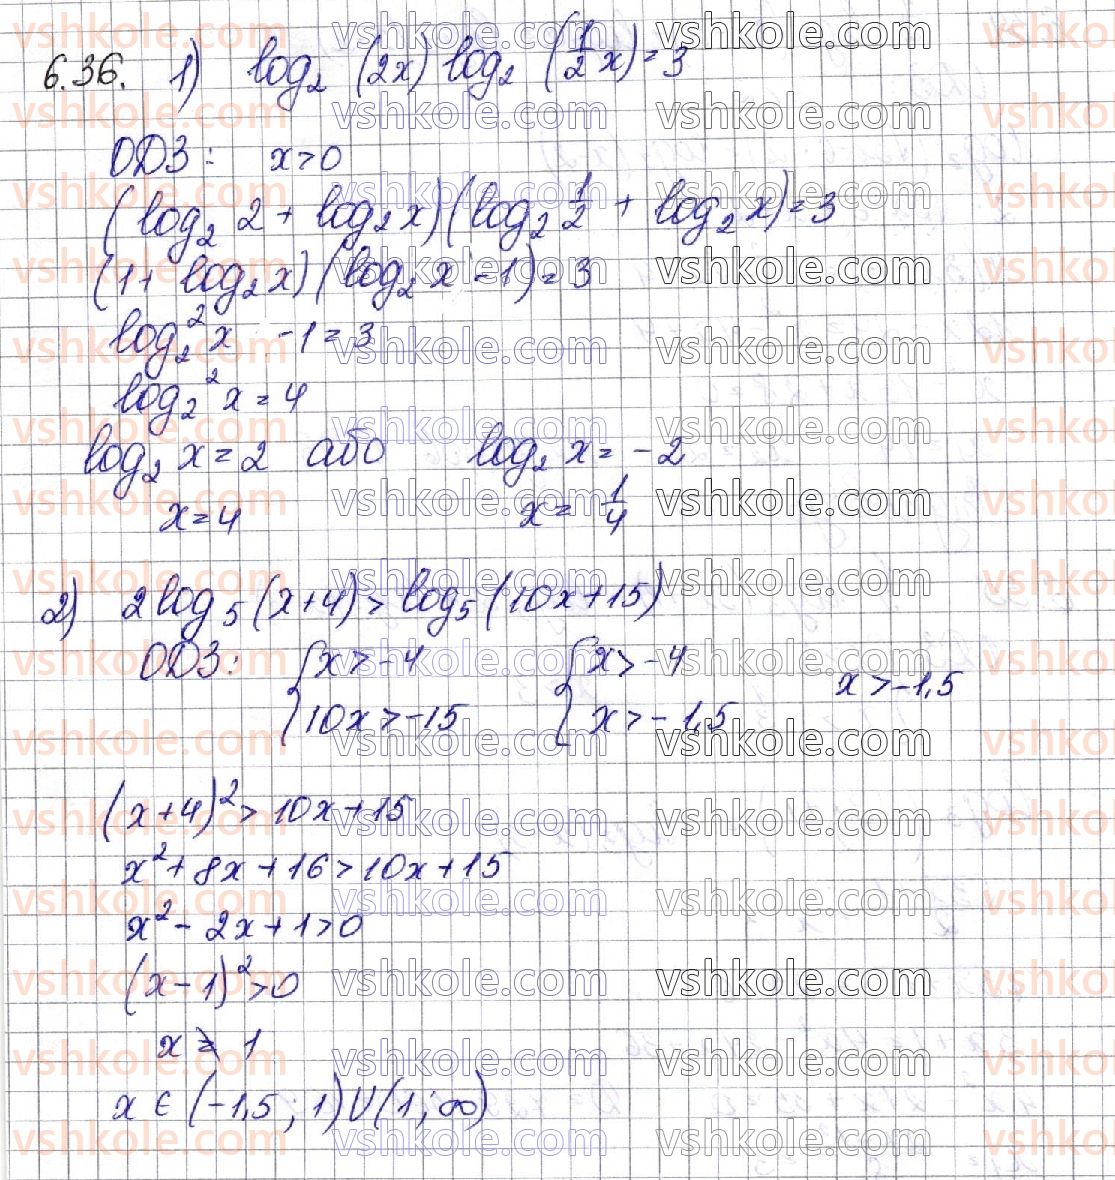 6.36. 1) log₂ (2x) log₂ (1/2 x) = 3
ОДЗ: x>0
(log₂ 2 + log₂ x)(log₂ 1/2 + log₂ x) = 3
(1 + log₂ x)(log₂ x - 1) = 3
log₂² x - 1 = 3
log₂² x = 4
log₂ x = 2 або log₂ x = -2
x = 4 x = 1/4
2) 2log₅ (x+4) > log₅ (10x+15)
ОДЗ: { x > -4 { x > -4 x > -1,5
10x > -15 x > -1,5
(x+4)² > 10x+15
x² + 8x + 16 > 10x + 15
x² - 2x + 1 > 0
(x-1)² > 0
x ≠ 1
x ∈ (-1,5; 1) U (1; ∞)
vshkole.com